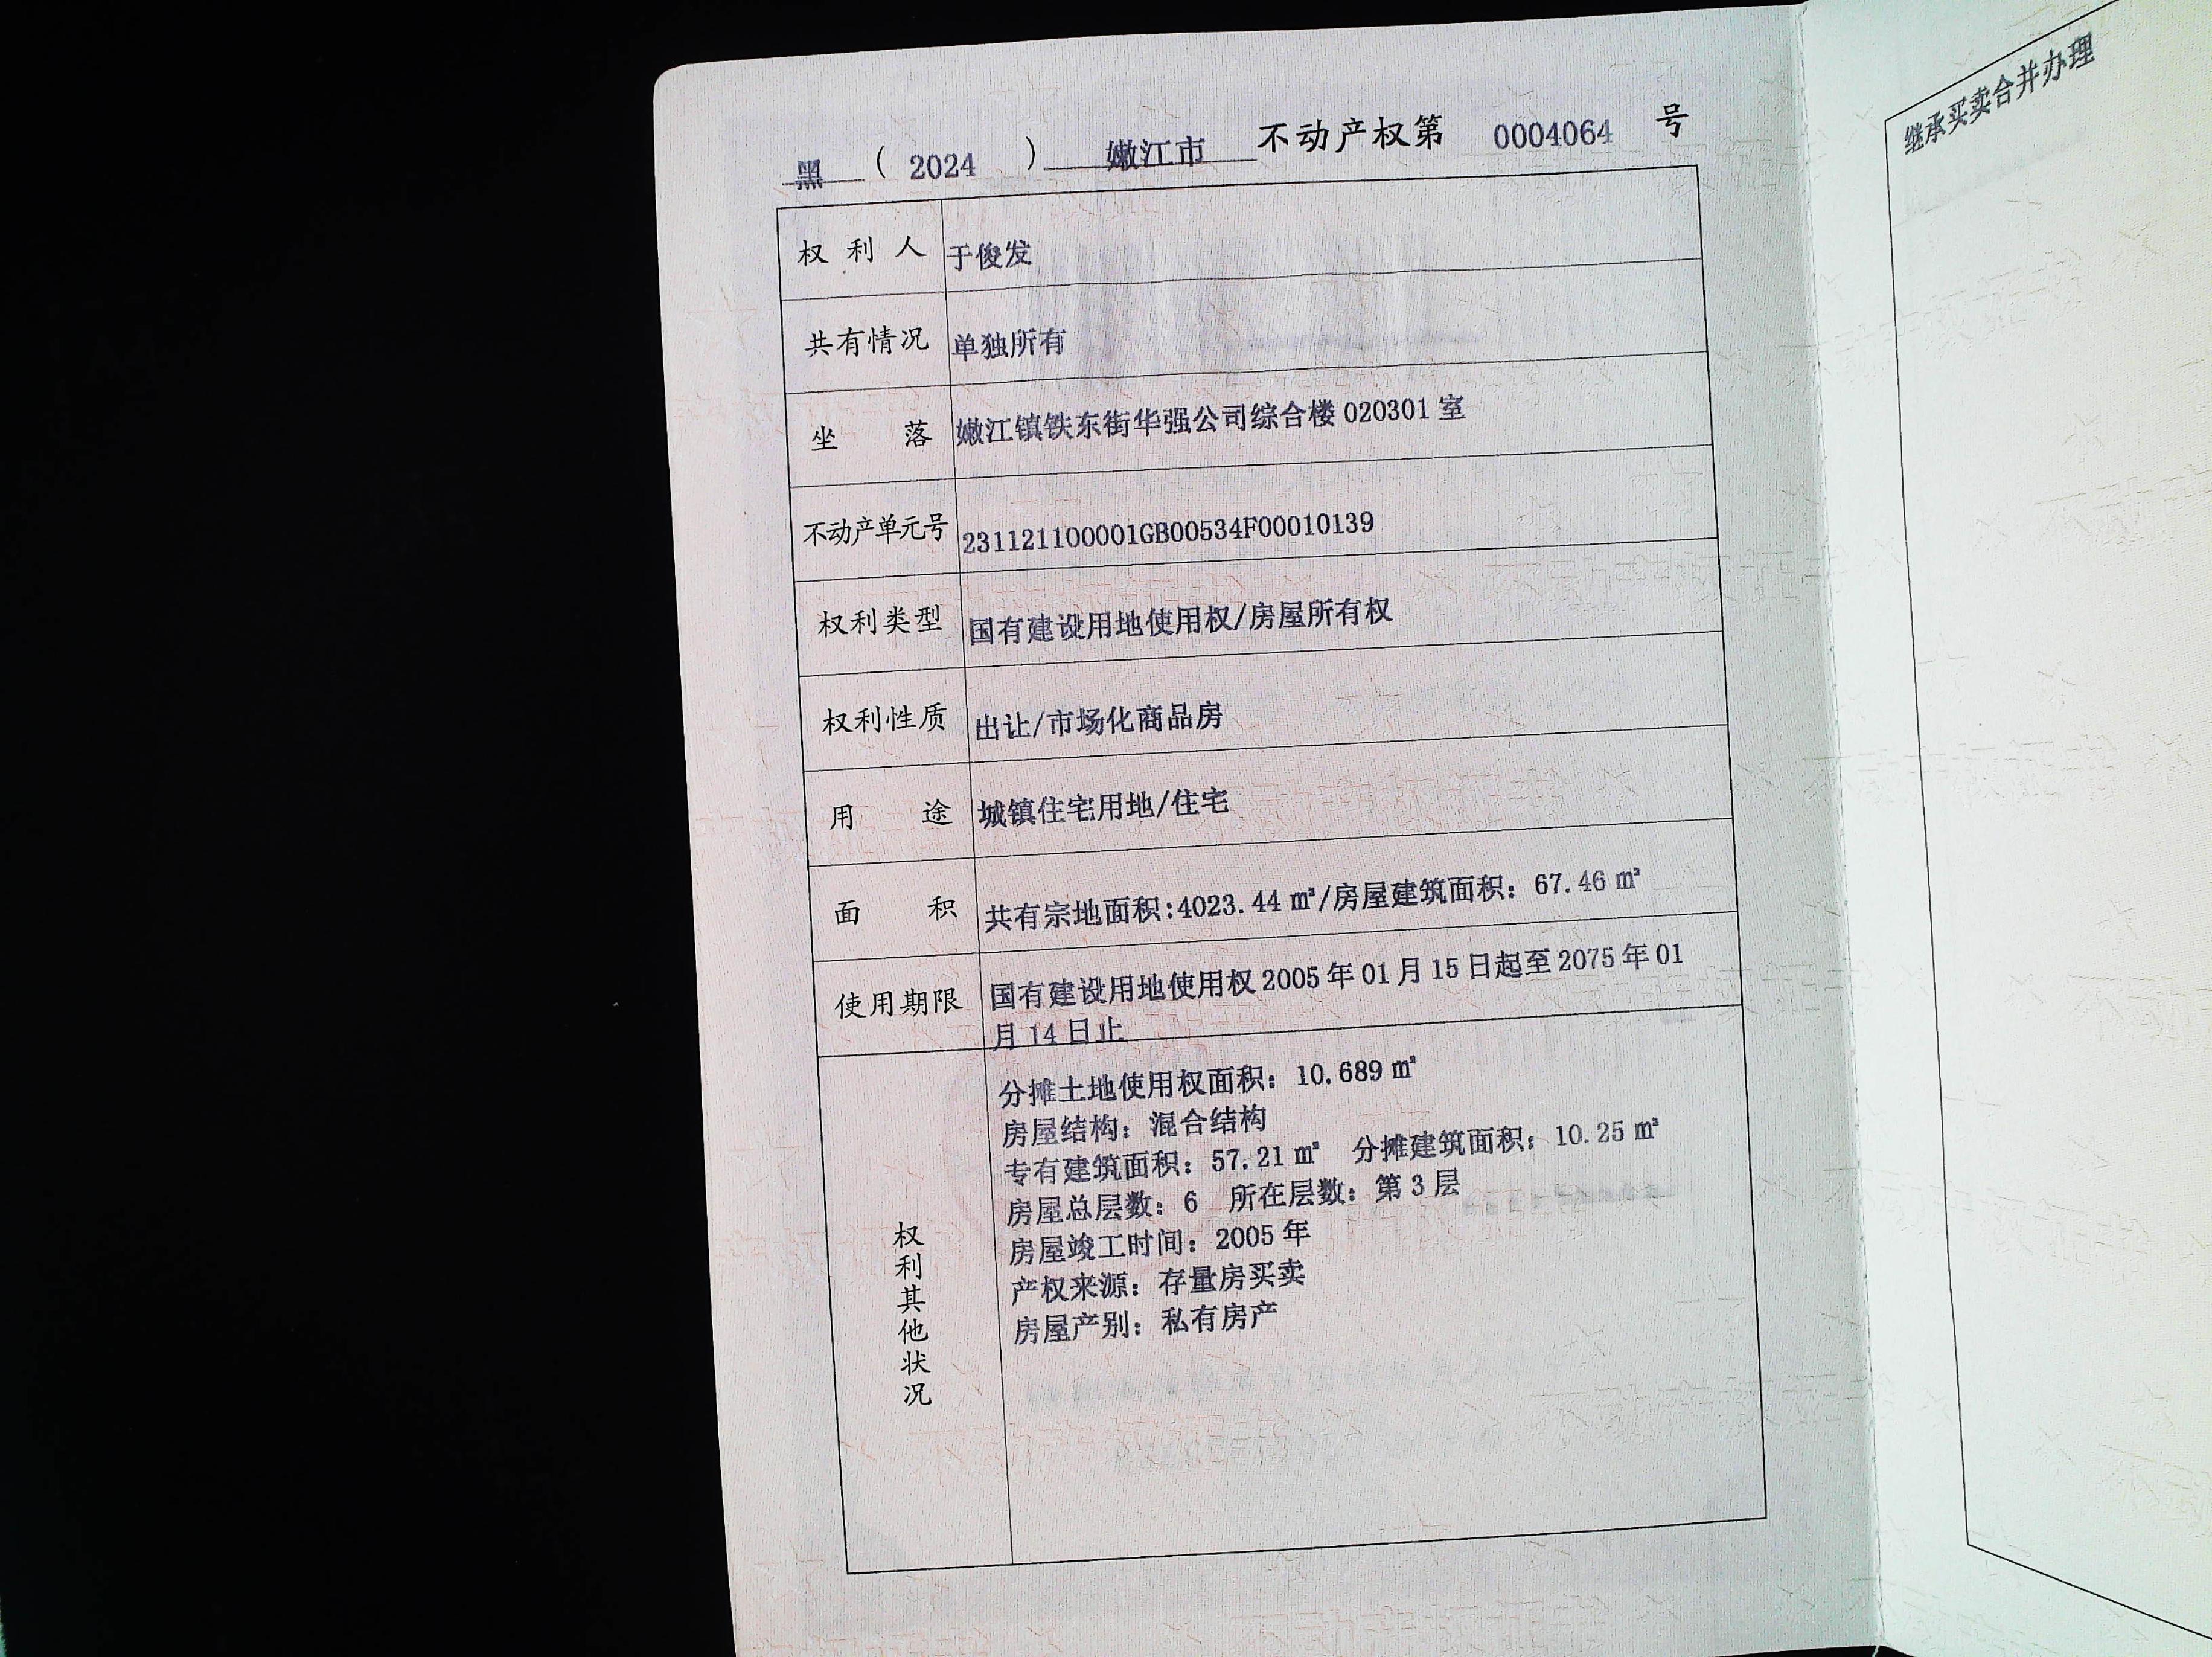 黑 ( 2024 ) 嫩江市 不动产权第 0004064 号
权利人 于俊发
共有情况 单独所有
坐落 嫩江镇铁东街华强公司综合楼020301室
不动产单元号 231121100001GB00534F00010139
权利类型 国有建设用地使用权/房屋所有权
权利性质 出让/市场化商品房
用途 城镇住宅用地/住宅
面积 共有宗地面积:4023.44㎡/房屋建筑面积：67.46㎡
使用期限 国有建设用地使用权2005年01月15日起至2075年01
月14日止
权利其他状况
分摊土地使用权面积：10.689㎡
房屋结构：混合结构
专有建筑面积：57.21㎡ 分摊建筑面积：10.25㎡
房屋总层数：6 所在层数：第3层
房屋竣工时间：2005年
产权来源：存量房买卖
房屋产别：私有房产
继承买卖合并办理